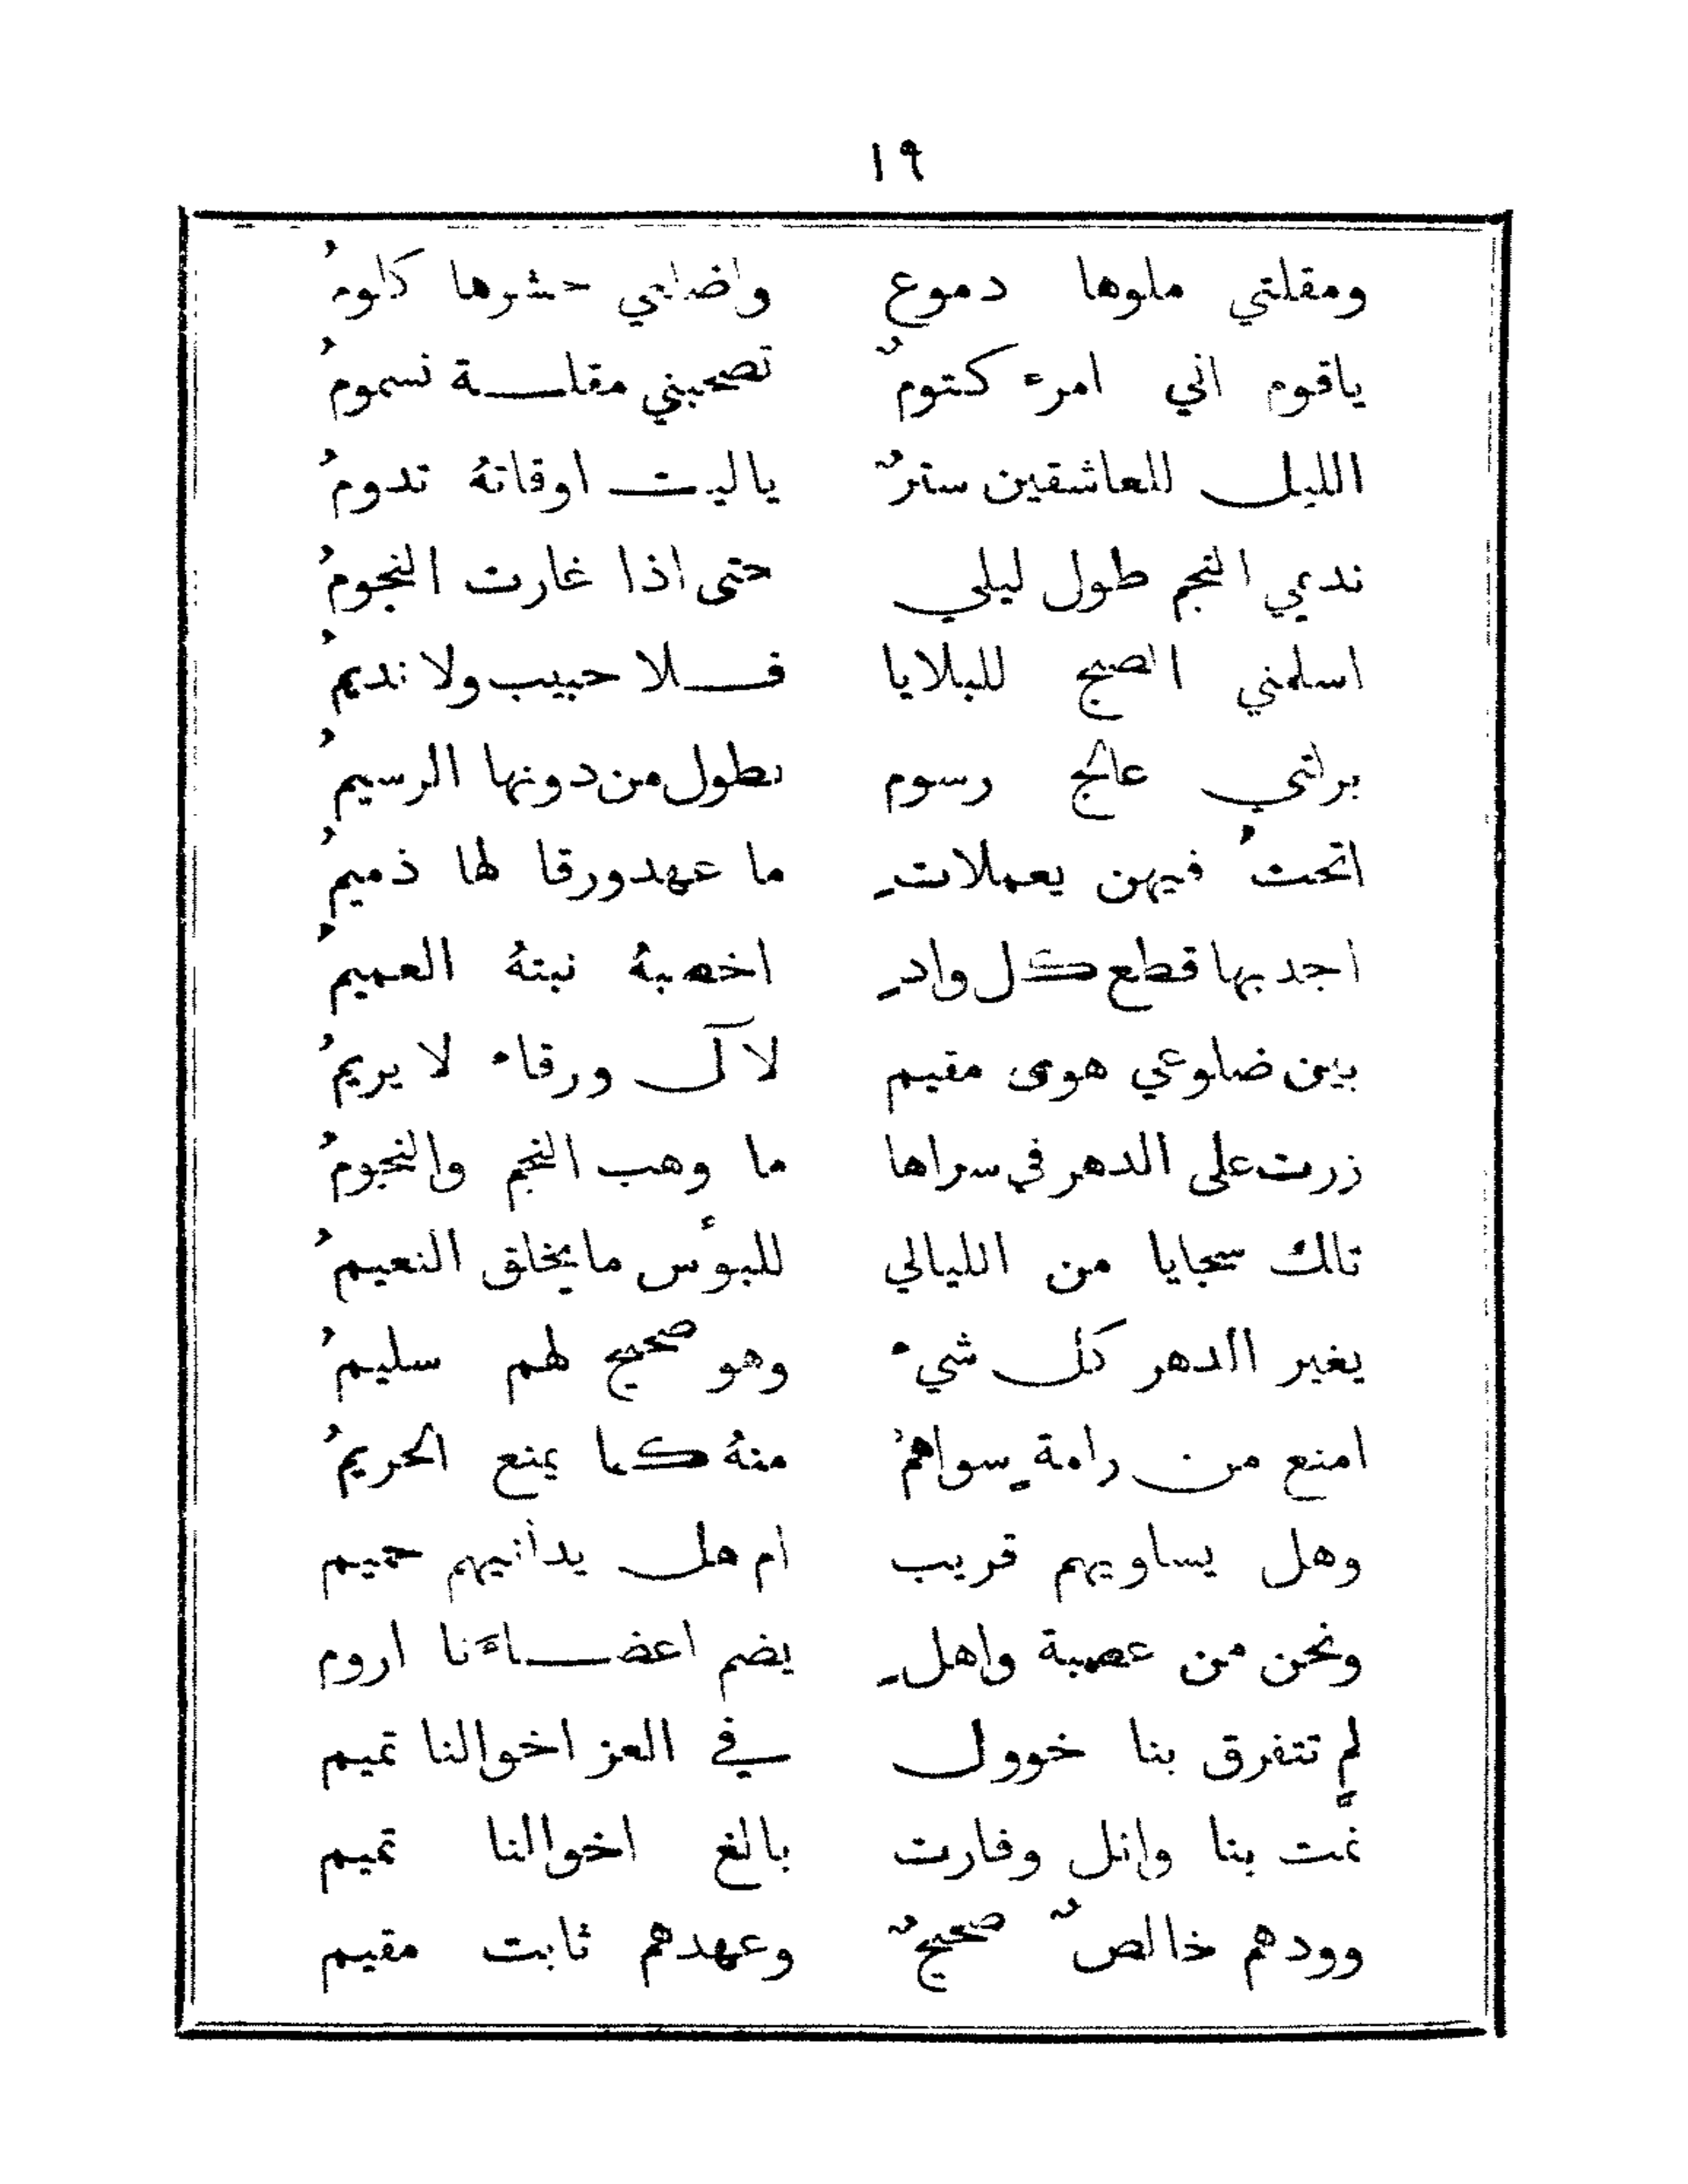 ١٩
ومقلتي ملوها دموع واضلعي حشرها كلومُ
ياقوم اني امرء كتومٌ تصحبني مقلــة نسمومُ
الليل للعاشقين سترٌ ياليت اوقاتهُ تدومُ
نديمي النجم طول ليلي حتى اذا غارت النجومُ
اسلمني الصبح للبلايا فــلا حبيب ولا نديمُ
برلتي عالج رسوم يطول من دونها الرسيمُ
اتحتُ فيهن يعملاتٍ ما عهد ورقا لها ذميمُ
اجد بها قطع كل وادٍ اخصبهُ نبتهُ العميمُ
بين ضلوعي هوى مقيم لآل ورقاء لا يريمُ
زرت على الدهر في سراها ما وهب النجم والنجومُ
تلك سجايا من الليالي للبوءس ما يخلق النعيمُ
يغير الدهر كل شيء وهو صحيح لهم سليمُ
امنع من رامةٍ سواهمُ منهُ كما يمنع الحريمُ
وهل يساويهم قريب ام هل يدانيهم حميم
ونحن من عصبة واهلٍ يضم اعضــاءَنا اروم
لم تتفرق بنا خوول في العز اخوالنا تميم
نمَّت بنا وائل وفارت بالغ اخوالنا تميم
وودهم خالصٌ صحيحٌ وعهدهم ثابت مقيم